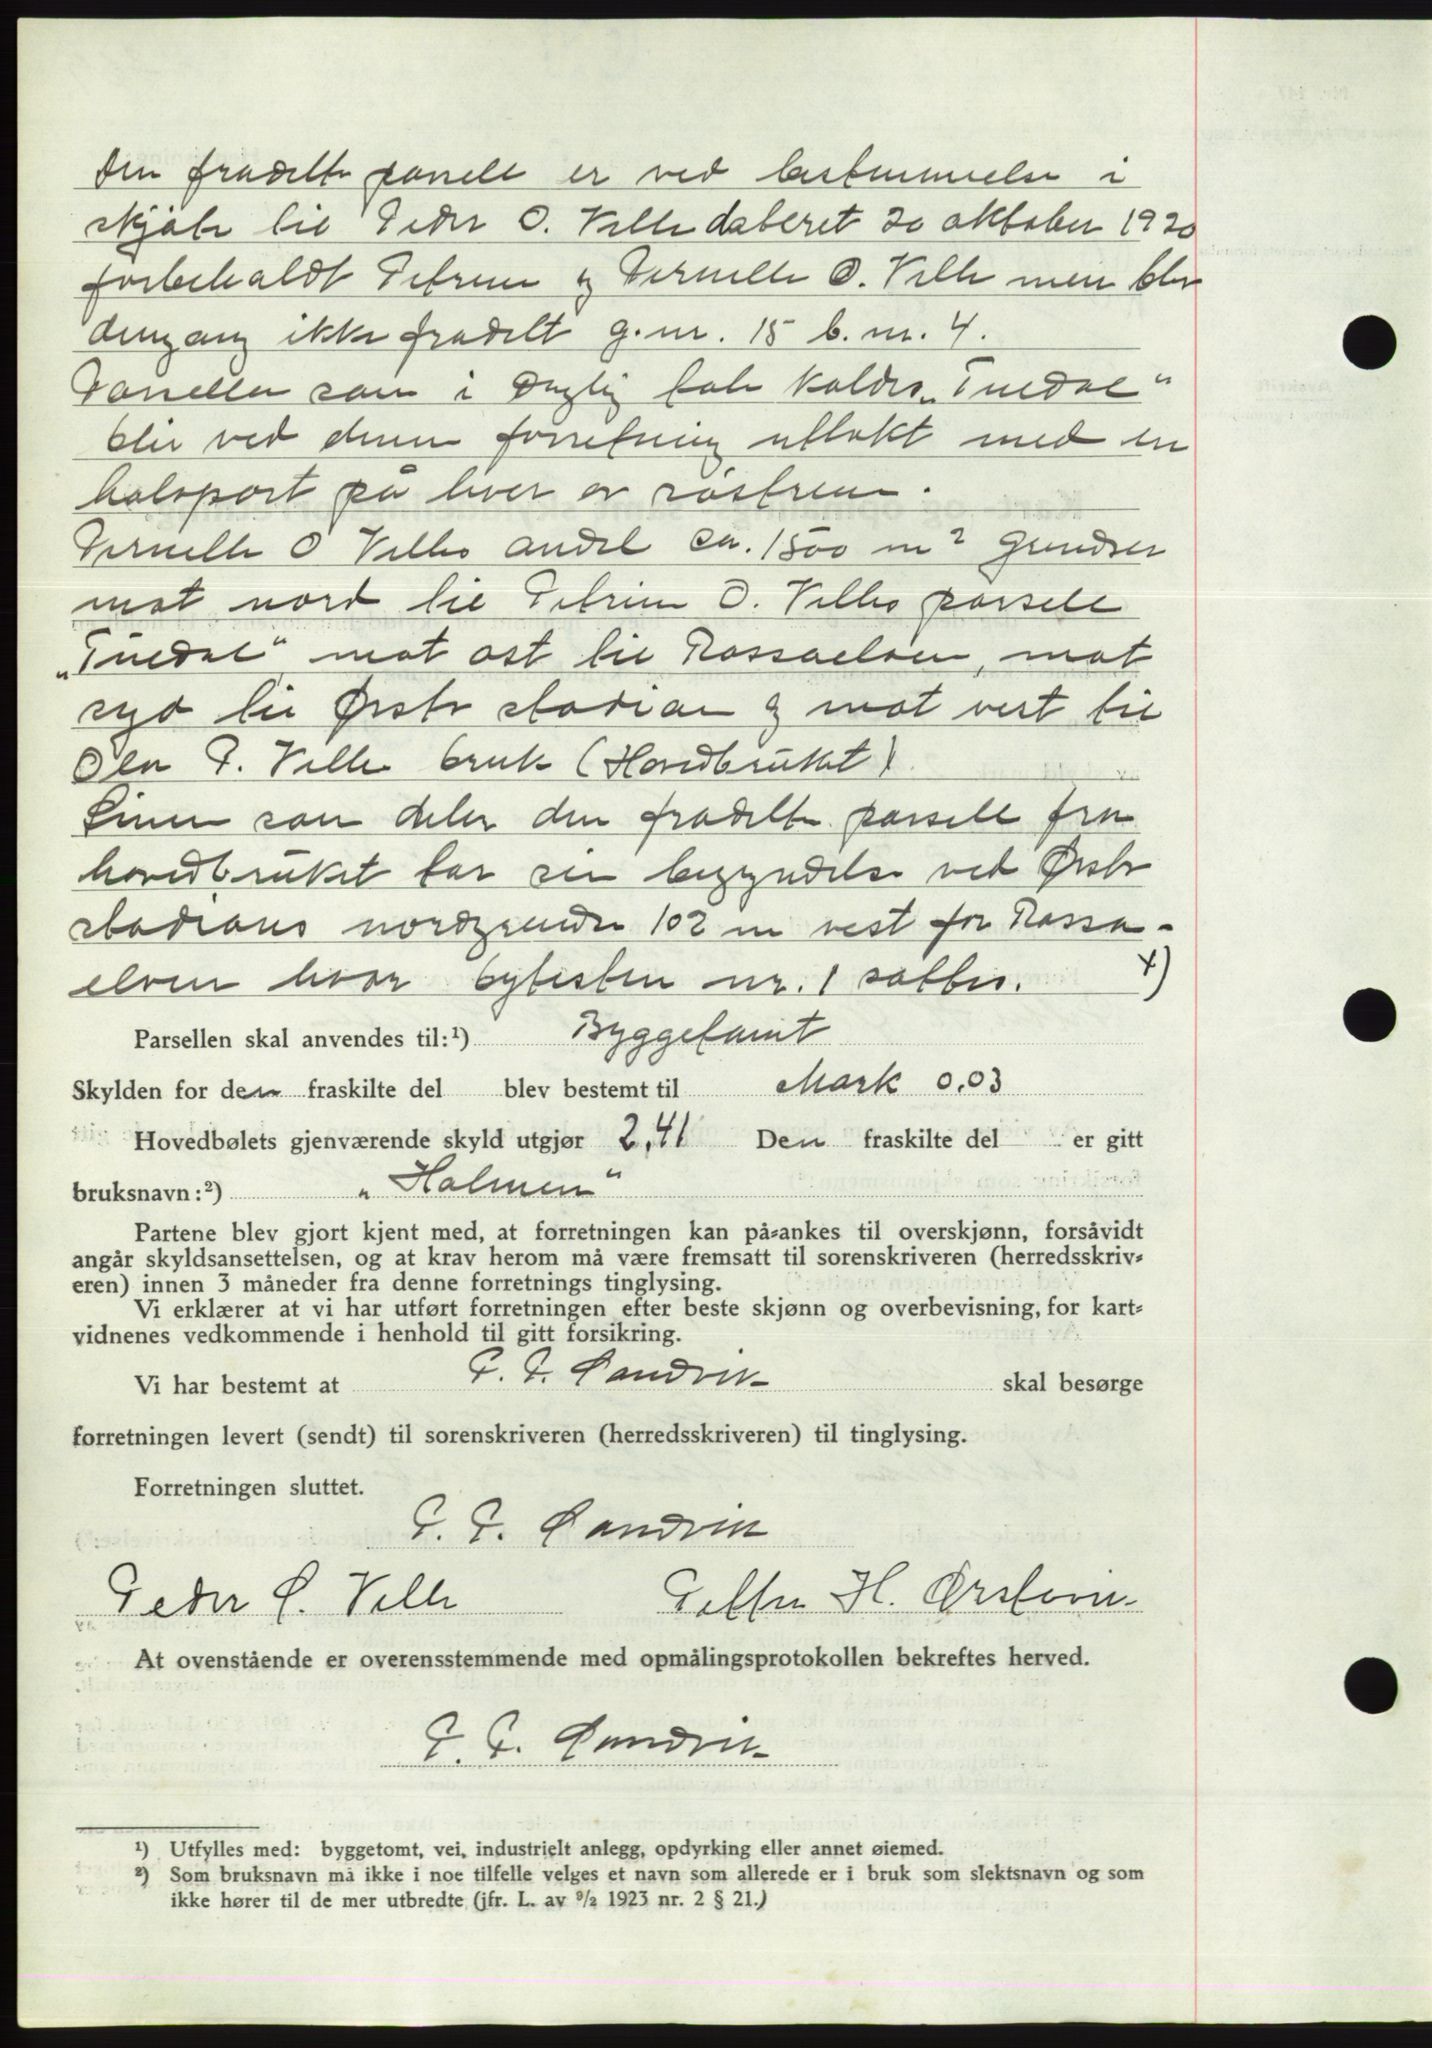 Den fradelte parsell er ved bestemmelse i
skjøte til Peder O. Velle datert 20 oktober 1920
forbeholdt Petrine og Pernelle O. Velle men blev
dengang ikke fradelt g.nr. 15 b.nr. 4.
Parsellen som i daglig tale kaldes „Tuedal"
blir ved denne forretning utlakt med en
halvpart på hver av søstrene.
Pernelle O Velles andel ca. 1500 m² grendser
mot nord til Petrine O. Velles parsell
„Tuedal" mot øst til Rossaelven, mot
syd til Ørsta stadion og mot vest til
Ola P. Velle bruk (Hovedbruket)
Linen som deler den fradelte parsell fra
hovedbruket tar sin begyndelse ved Ørsta
stadions nordgrendse 102 m vest for Rossa-
elven hvor bytesten nr. 1 sattes. x)
Parsellen skal anvendes til:¹) Byggetomt
Skylden for den fraskilte del blev bestemt til Mark 0.03
Hovedbølets gjenværende skyld utgjør 2,41 Den fraskilte del er gitt
bruksnavn:²) „Holmen"
Partene blev gjort kjent med, at forretningen kan på-ankes til overskjønn, forsåvidt
angår skyldsansettelsen, og at krav herom må være fremsatt til sorenskriveren (herredsskriv-
eren) innen 3 måneder fra denne forretnings tinglysing.
Vi erklærer at vi har utført forretningen efter beste skjønn og overbevisning, for kart-
vidnenes vedkommende i henhold til gitt forsikring.
Vi har bestemt at P. P. Sandvik skal besørge
forretningen levert (sendt) til sorenskriveren (herredsskriveren) til tinglysing.
Forretningen sluttet.
P. P. Sandvik
Peder O. Velle Petter H. Ørstavik
At ovenstående er overensstemmende med opmålingsprotokollen bekreftes herved.
P. P. Sandvik
¹) Utfylles med: byggetomt, vei, industrielt anlegg, opdyrking eller annet øiemed.
²) Som bruksnavn må ikke i noe tilfelle velges et navn som allerede er i bruk som slektsnavn og som
ikke hører til de mer utbredte (jfr. L. av 9/2 1923 nr. 2 § 21.)